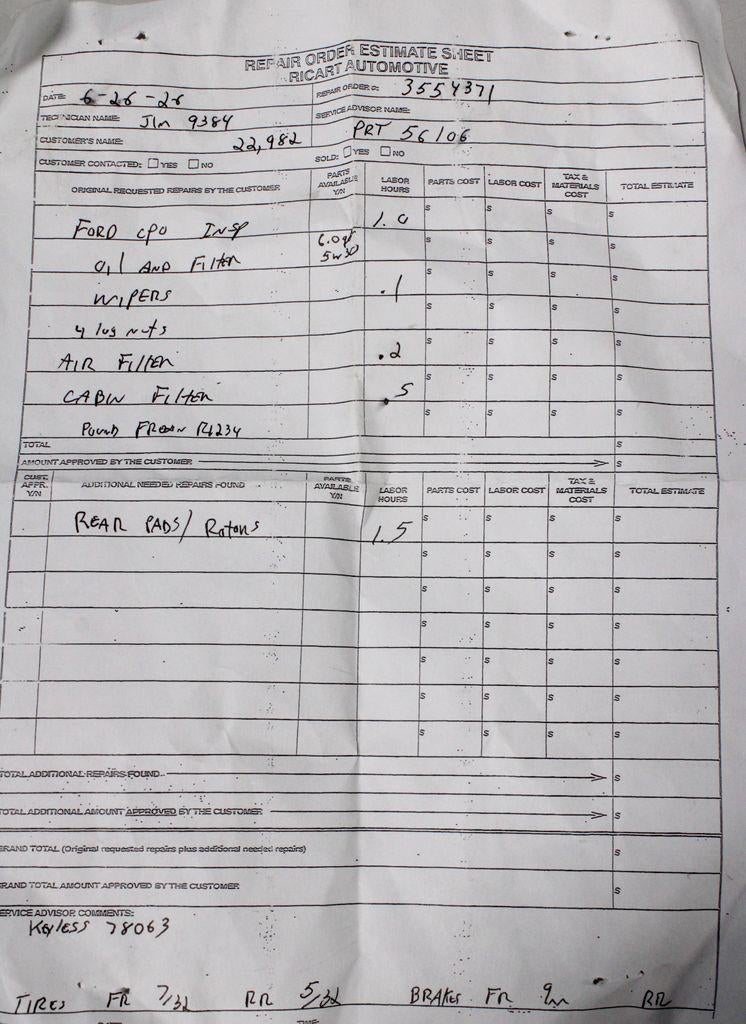 REPAIR ORDER ESTIMATE SHEET
RICART AUTOMOTIVE
DATE: 6-26-26 REPAIR ORDER #: 3554371
TECHNICIAN NAME: Jim 9384 SERVICE ADVISOR NAME:
CUSTOMER'S NAME: 22,982 PRT 56106
CUSTOMER CONTACTED: YES NO SOLD: YES NO
ORIGINAL REQUESTED REPAIRS BY THE CUSTOMER PARTS AVAILABLE Y/N LABOR HOURS PARTS COST LABOR COST TAX & MATERIALS COST TOTAL ESTIMATE
FORD CPO INSP 1.0 $ $ $ $
OIL AND FILTER 6.0 qt 5w30 $ $ $ $
WIPERS .1 $ $ $ $
4 lug nuts $ $ $ $
AIR FILTER .2 $ $ $ $
CABIN FILTER .5 $ $ $ $
POUND FREON R1234 $ $ $ $
TOTAL $
AMOUNT APPROVED BY THE CUSTOMER $
CUST. APPR. Y/N ADDITIONAL NEEDED REPAIRS FOUND PARTS AVAILABLE Y/N LABOR HOURS PARTS COST LABOR COST TAX & MATERIALS COST TOTAL ESTIMATE
REAR PADS/ Rotors 1.5 $ $ $ $
$ $ $ $
$ $ $ $
$ $ $ $
$ $ $ $
$ $ $ $
$ $ $ $
TOTAL ADDITIONAL REPAIRS FOUND $
TOTAL ADDITIONAL AMOUNT APPROVED BY THE CUSTOMER $
GRAND TOTAL (Original requested repairs plus additional needed repairs) $
GRAND TOTAL AMOUNT APPROVED BY THE CUSTOMER $
SERVICE ADVISOR COMMENTS:
Keyless 78063
TIRES FR 7/32 RR 5/32 BRAKES FR 9m RR